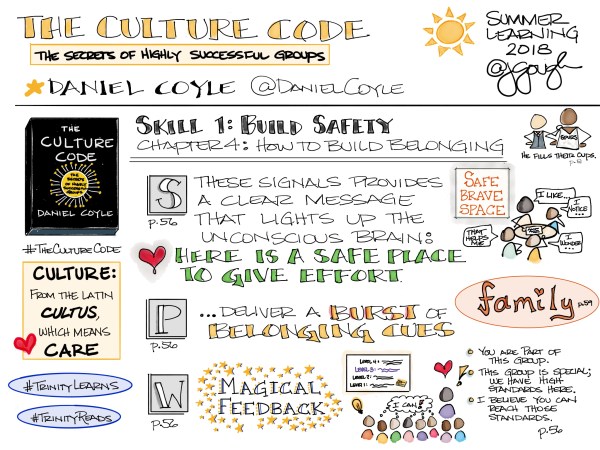 THE CULTURE CODE
THE SECRETS OF HIGHLY SUCCESSFUL GROUPS
DANIEL COYLE @DANIELCOYLE
SUMMER
LEARNING
2018
@jgough
THE
CULTURE
CODE
THE
SECRETS OF
HIGHLY
SUCCESSFUL
GROUPS
DANIEL COYLE
#THECULTURECODE
SKILL 1: BUILD SAFETY
CHAPTER 4: HOW TO BUILD BELONGING
HE FILLS THEIR CUPS.
S
p.56
THESE SIGNALS PROVIDES
A CLEAR MESSAGE
THAT LIGHTS UP THE
UNCONSCIOUS BRAIN:
HERE IS A SAFE PLACE
TO GIVE EFFORT.
SAFE
BRAVE
SPACE
I LIKE...
I NOTICE
...
THAT
HELPS
ME
I
WONDER
CULTURE:
FROM THE LATIN
CULTUS,
WHICH MEANS
CARE
#TRINITYLEARNS
#TRINITYREADS
P
p.56
...DELIVER A BURST OF
BELONGING CUES
family p.59
W
p.56
MAGICAL
FEEDBACK
LEVEL 4:
LEVEL 3:
LEVEL 2:
LEVEL 1:
I CAN!
YOU ARE PART OF
THIS GROUP.
THIS GROUP IS SPECIAL;
WE HAVE HIGH
STANDARDS HERE.
I BELIEVE YOU CAN
REACH THOSE
STANDARDS.
p.56